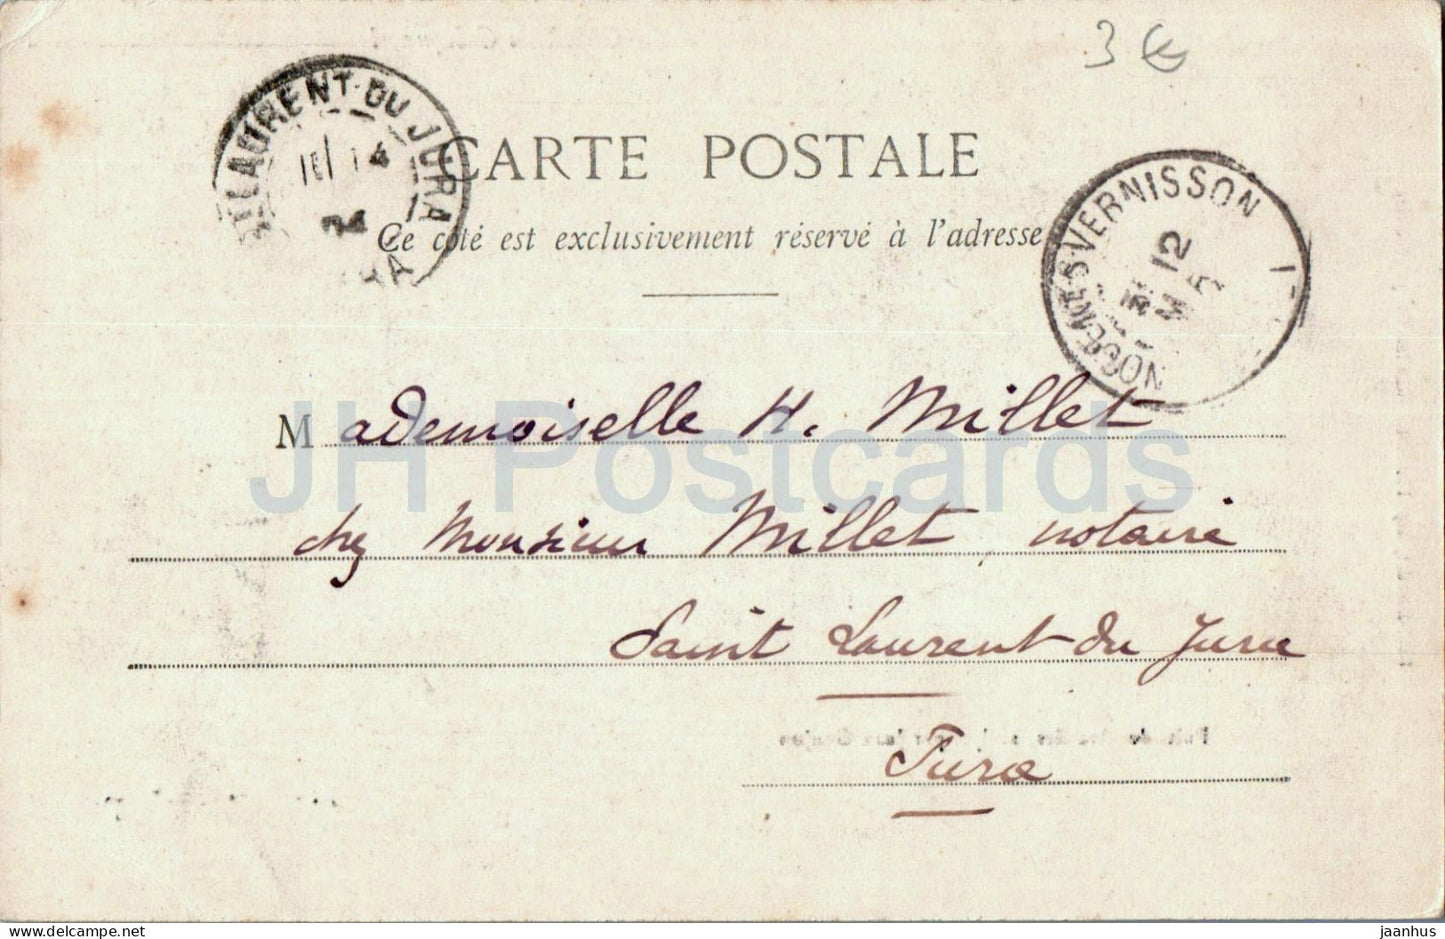 3 €
ST LAURENT-DU JURA
14
CARTE POSTALE
Ce côté est exclusivement réservé à l'adresse
NOGENT-S-VERNISSON
12
Mademoiselle H. Millet
chez Monsieur Millet, notaire
Saint Laurent du Jura
Jura
JH Postcards
delcampe.net
jaanhus